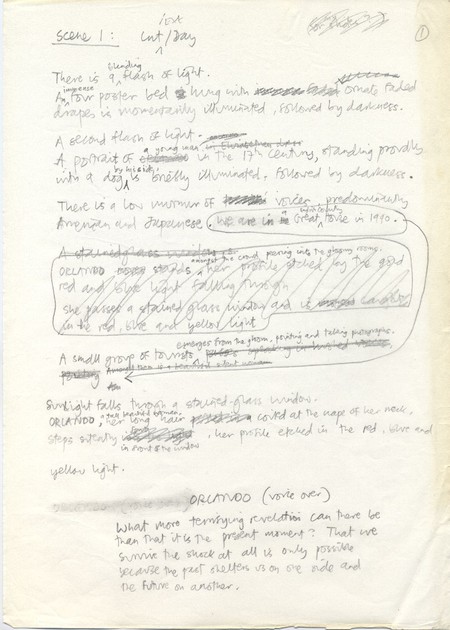 1
Scene 1: Int/Day
There is a blinding flash of light.
An immense four poster bed hung with ornate faded
drapes is momentarily illuminated, followed by darkness.
A second flash of light.
A portrait of a young man in the 17th century, standing proudly
with a dog by his side, is briefly illuminated, followed by darkness.
There is a low murmur of voices predominantly
American and Japanese. We are in a great house in 1990.
A stained glass window
amongst the crowd, peering into the gloomy rooms.
ORLANDO stands, her profile etched by the gold
red and blue light falling through
She passes a stained glass window and is caught
in the red, blue and yellow light
emerges from the gloom, pointing and taking photographs.
A small group of tourists
Sunlight falls through a stained-glass window.
ORLANDO, her long hair coiled at the nape of her neck,
steps silently in front of the window, her profile etched in the red, blue and
yellow light.
ORLANDO (voice over)
What more terrifying revelation can there be
than that it is the present moment? That we
survive the shock at all is only possible
because the past shelters us on one side and
the future on another.